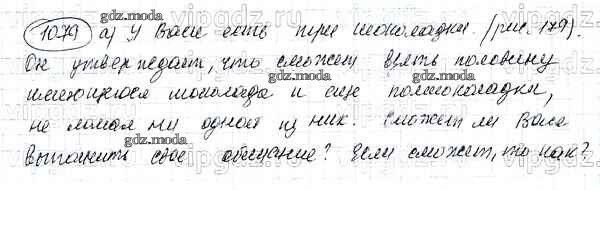 1079 а) У Васи есть три шоколадки. (рис. 179).
Он утверждает, что сможет взять половину
имеющегося шоколада и еще полшоколадки,
не ломая ни одной из них. Сможет ли Вася
выполнить свое обещание? Если сможет, то как?
gdz.model
gdz.model
gdz.model
gdz.model
vipgdz
vipgdz.